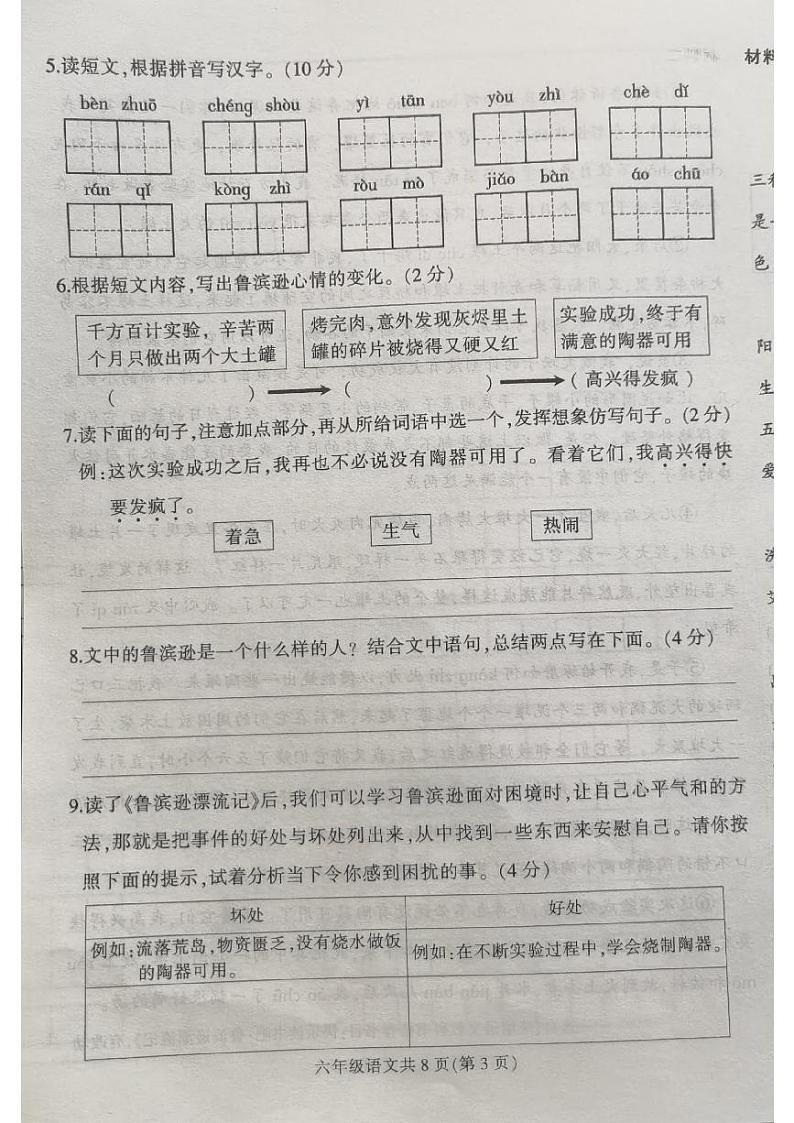 5.读短文,根据拼音写汉字。(10 分)
bèn zhuō chéng shòu yì tān yòu zhì chè dǐ
rán qǐ kòng zhì ròu mò jiǎo bàn áo chū
6.根据短文内容,写出鲁滨逊心情的变化。(2 分)
千方百计实验,辛苦两个月只做出两个大土罐
烤完肉,意外发现灰烬里土罐的碎片被烧得又硬又红
实验成功,终于有满意的陶器可用
( ) ( ) ( 高兴得发疯 )
7.读下面的句子,注意加点部分,再从所给词语中选一个,发挥想象仿写句子。(2 分)
例:这次实验成功之后,我再也不必说没有陶器可用了。看着它们,我高兴得快
要发疯了。
着急 生气 热闹
8.文中的鲁滨逊是一个什么样的人?结合文中语句,总结两点写在下面。(4 分)
9.读了《鲁滨逊漂流记》后,我们可以学习鲁滨逊面对困境时,让自己心平气和的方
法,那就是把事件的好处与坏处列出来,从中找到一些东西来安慰自己。请你按
照下面的提示,试着分析当下令你感到困扰的事。(4 分)
坏处 好处
例如:流落荒岛,物资匮乏,没有烧水做饭的陶器可用。
例如:在不断实验过程中,学会烧制陶器。
六年级语文共 8 页(第 3 页)
材料
是
色
阳
生
五
爱